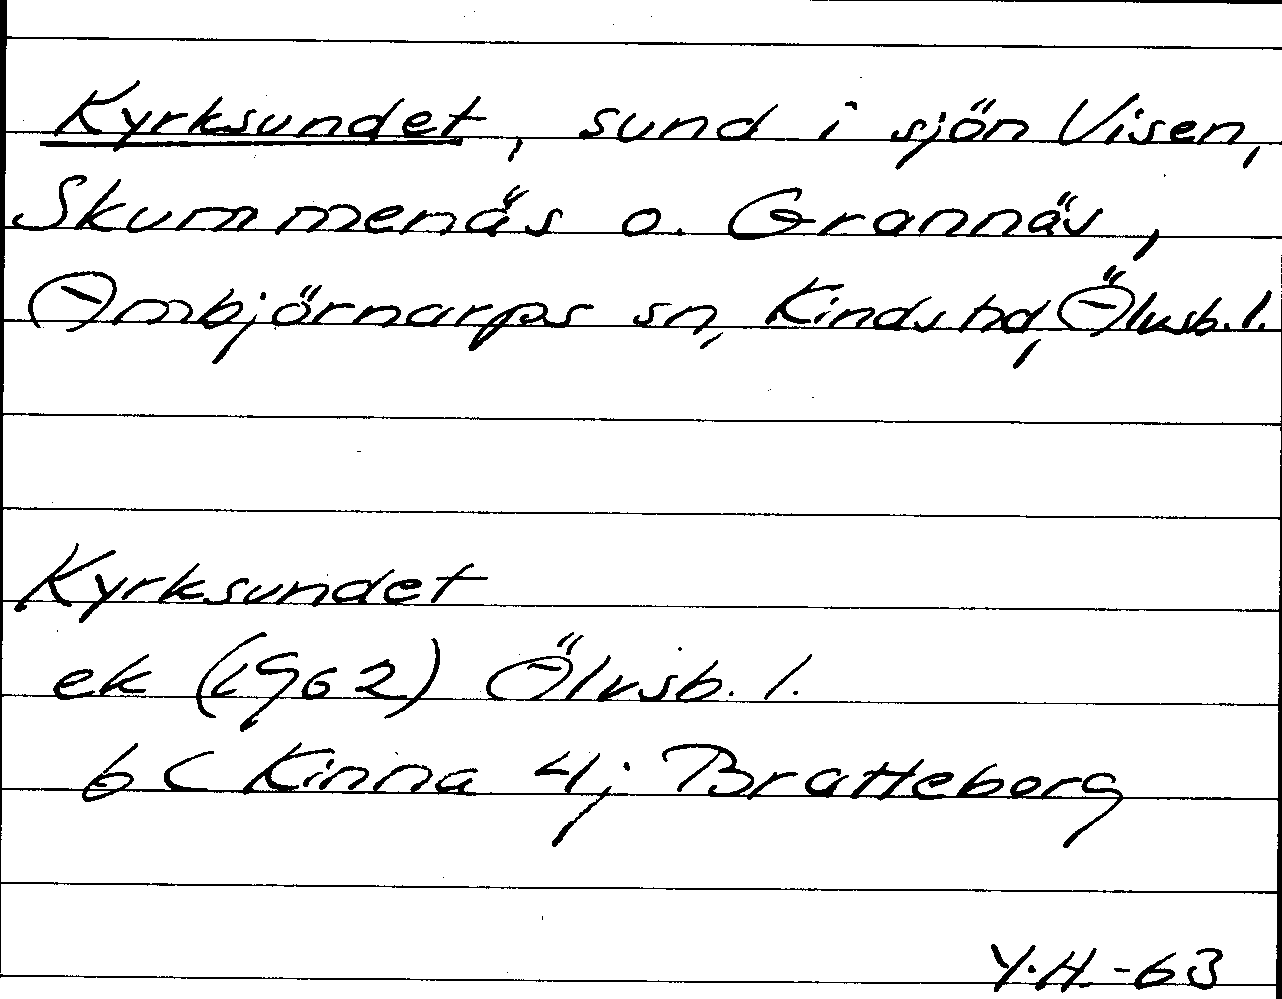 Kyrksundet, sund i sjön Visen,
Skummenäs o. Grannäs,
Ombjörnarps sn, Kinds hd, Ölvsb. l.
Kyrksundet
ek (1962) Ölvsb. l.
6 C Kinna 4j Bratteborg
Y.H. -63